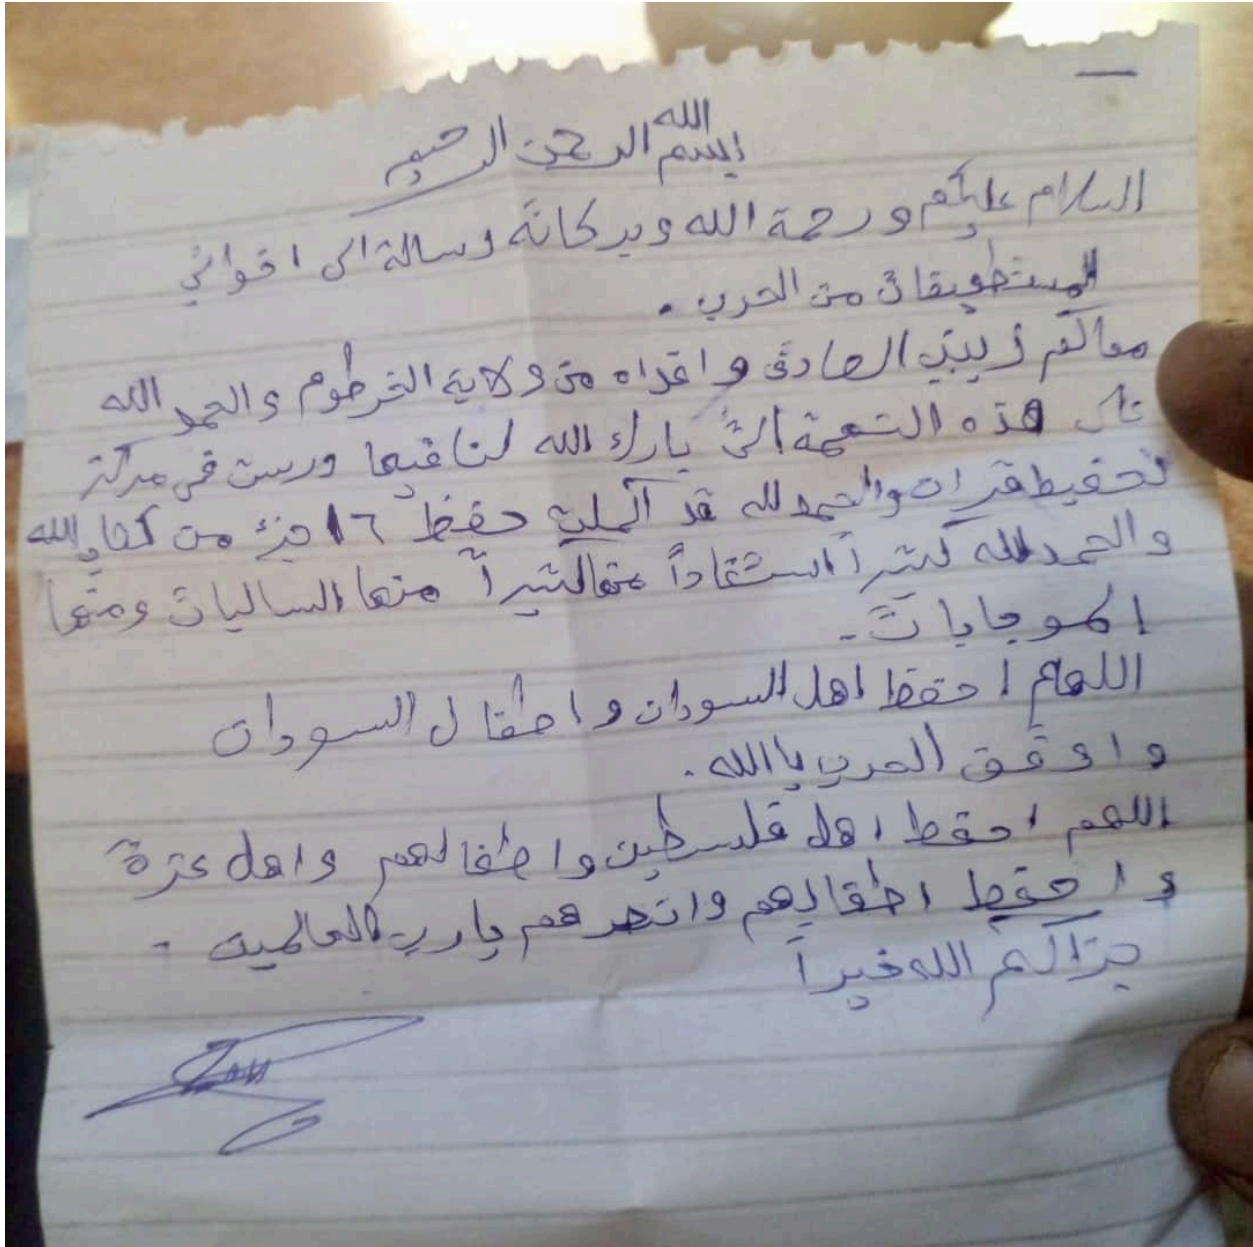 بسم الله الرحمن الرحيم
السلام عليكم ورحمة الله وبركاته رسالة الى اخواني
من الحرب .
معاكم زينب الصادق من ولاية الخرطوم والحمد الله
هذه النعمة التي بارك الله لنا فيها درست في مركز
تحفيظ قران والحمد لله قد اكملت حفظ 16 جزء من كتاب الله
والحمد لله كثيراً استفاداً منها كثيراً منها الساليات ومنها
الموجابات .
اللهم احفظ اهل السودان واطفال السودان
واوقف الحرب ياالله .
اللهم احفظ اهل فلسطين واطفالهم واهل غزة
واحفظ اطفالهم وانصرهم يارب العالمين .
جزاكم الله خيراً